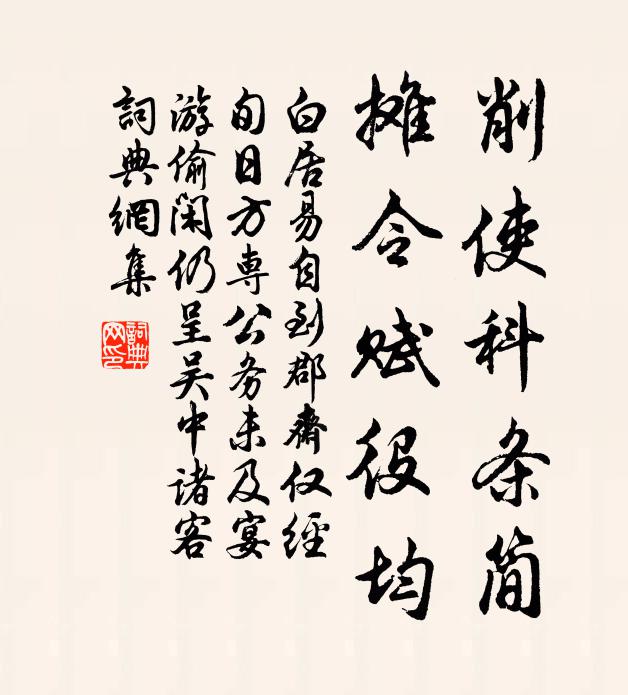 削使科条简
摊令赋役均
白居易自到郡齋仅經
旬日方専公务未及宴
游偷閑仍呈吴中诸客
詞典網集
詞典网印